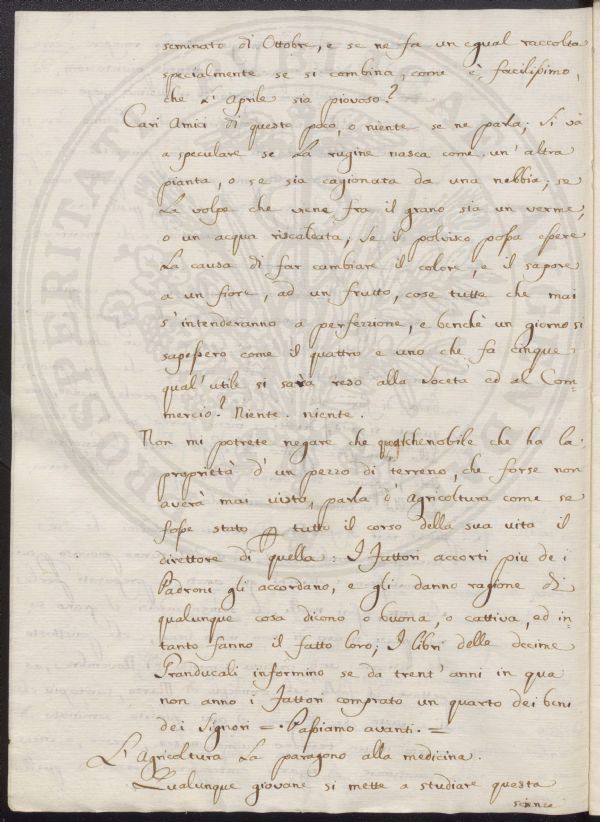 seminato di Ottobre, e se ne fa un egual raccolta
specialmente se si combina, come è facilissimo,
che L'Aprile sia piovoso?
Cari Amici di questo poco, o niente se ne parla; si và
a speculare se La rugine nasca come un'altra
pianta, o se sia cagionata da una nebbia, se
La volpe che viene fra il grano sia un verme,
o un acqua riscaldata, se il polvisco possa essere
La causa di far cambiare il colore, e il sapore
a un fiore, ad un frutto, cose tutte che mai
s'intenderanno a perfezzione, e benchè un giorno si
sapessero come il quattro e uno che fa cinque
qual'utile si sarà reso alla Società ed al Com=
mercio? Niente. niente.
Non mi potrete negare che qualchenobile che ha la
proprietà d'un pezzo di terreno, che forse non
averà mai visto, parla d'Agricoltura come se
fosse stato tutto il corso della sua vita il
direttore di quella: I Fattori accorti piu de i
Padroni gli accordano, e gli danno ragione di
qualunque cosa dicono o buona, o cattiva, ed in=
tanto fanno il fatto loro; I libri delle decime
Granducali informino se da trent'anni in qua
non anno i Fattori comprato un quarto dei beni
dei Signori =. Passiamo avanti. =
L'Agricoltura La paragono alla medicina.
Qualunque giovane si mette a studiare questa
scienza
PROSPERITATI PUBLICAE AUGENDAE